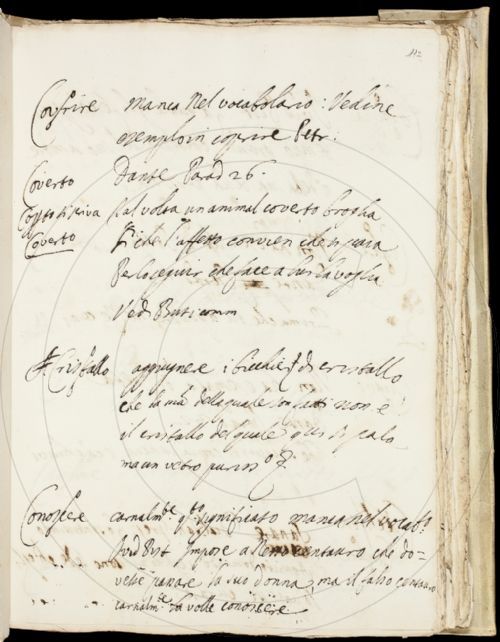 112
Coprire manca nel vocabolario: Vedine
esempio in coprire Petr:
Coverto Dante Parad 26.
Tal volta un animal coverto broglia
Coverto Si che l'affetto convien che si paia
Per lo seguir che face a lui la voglia
Vedi Buti comm
Cristallo aggiugnere i bicchieri di cristallo
che la mã della quale son fatti non è
il cristallo del quale qui si parla
ma un vetro puriss.o
Conoscere carnalm.te q.to significato manca nel vocab.o
Ovid Pist impose a Nesso centauro che do=
vesse passare la sua donna, ma il falso centauro
carnalm.te la volle conoscere